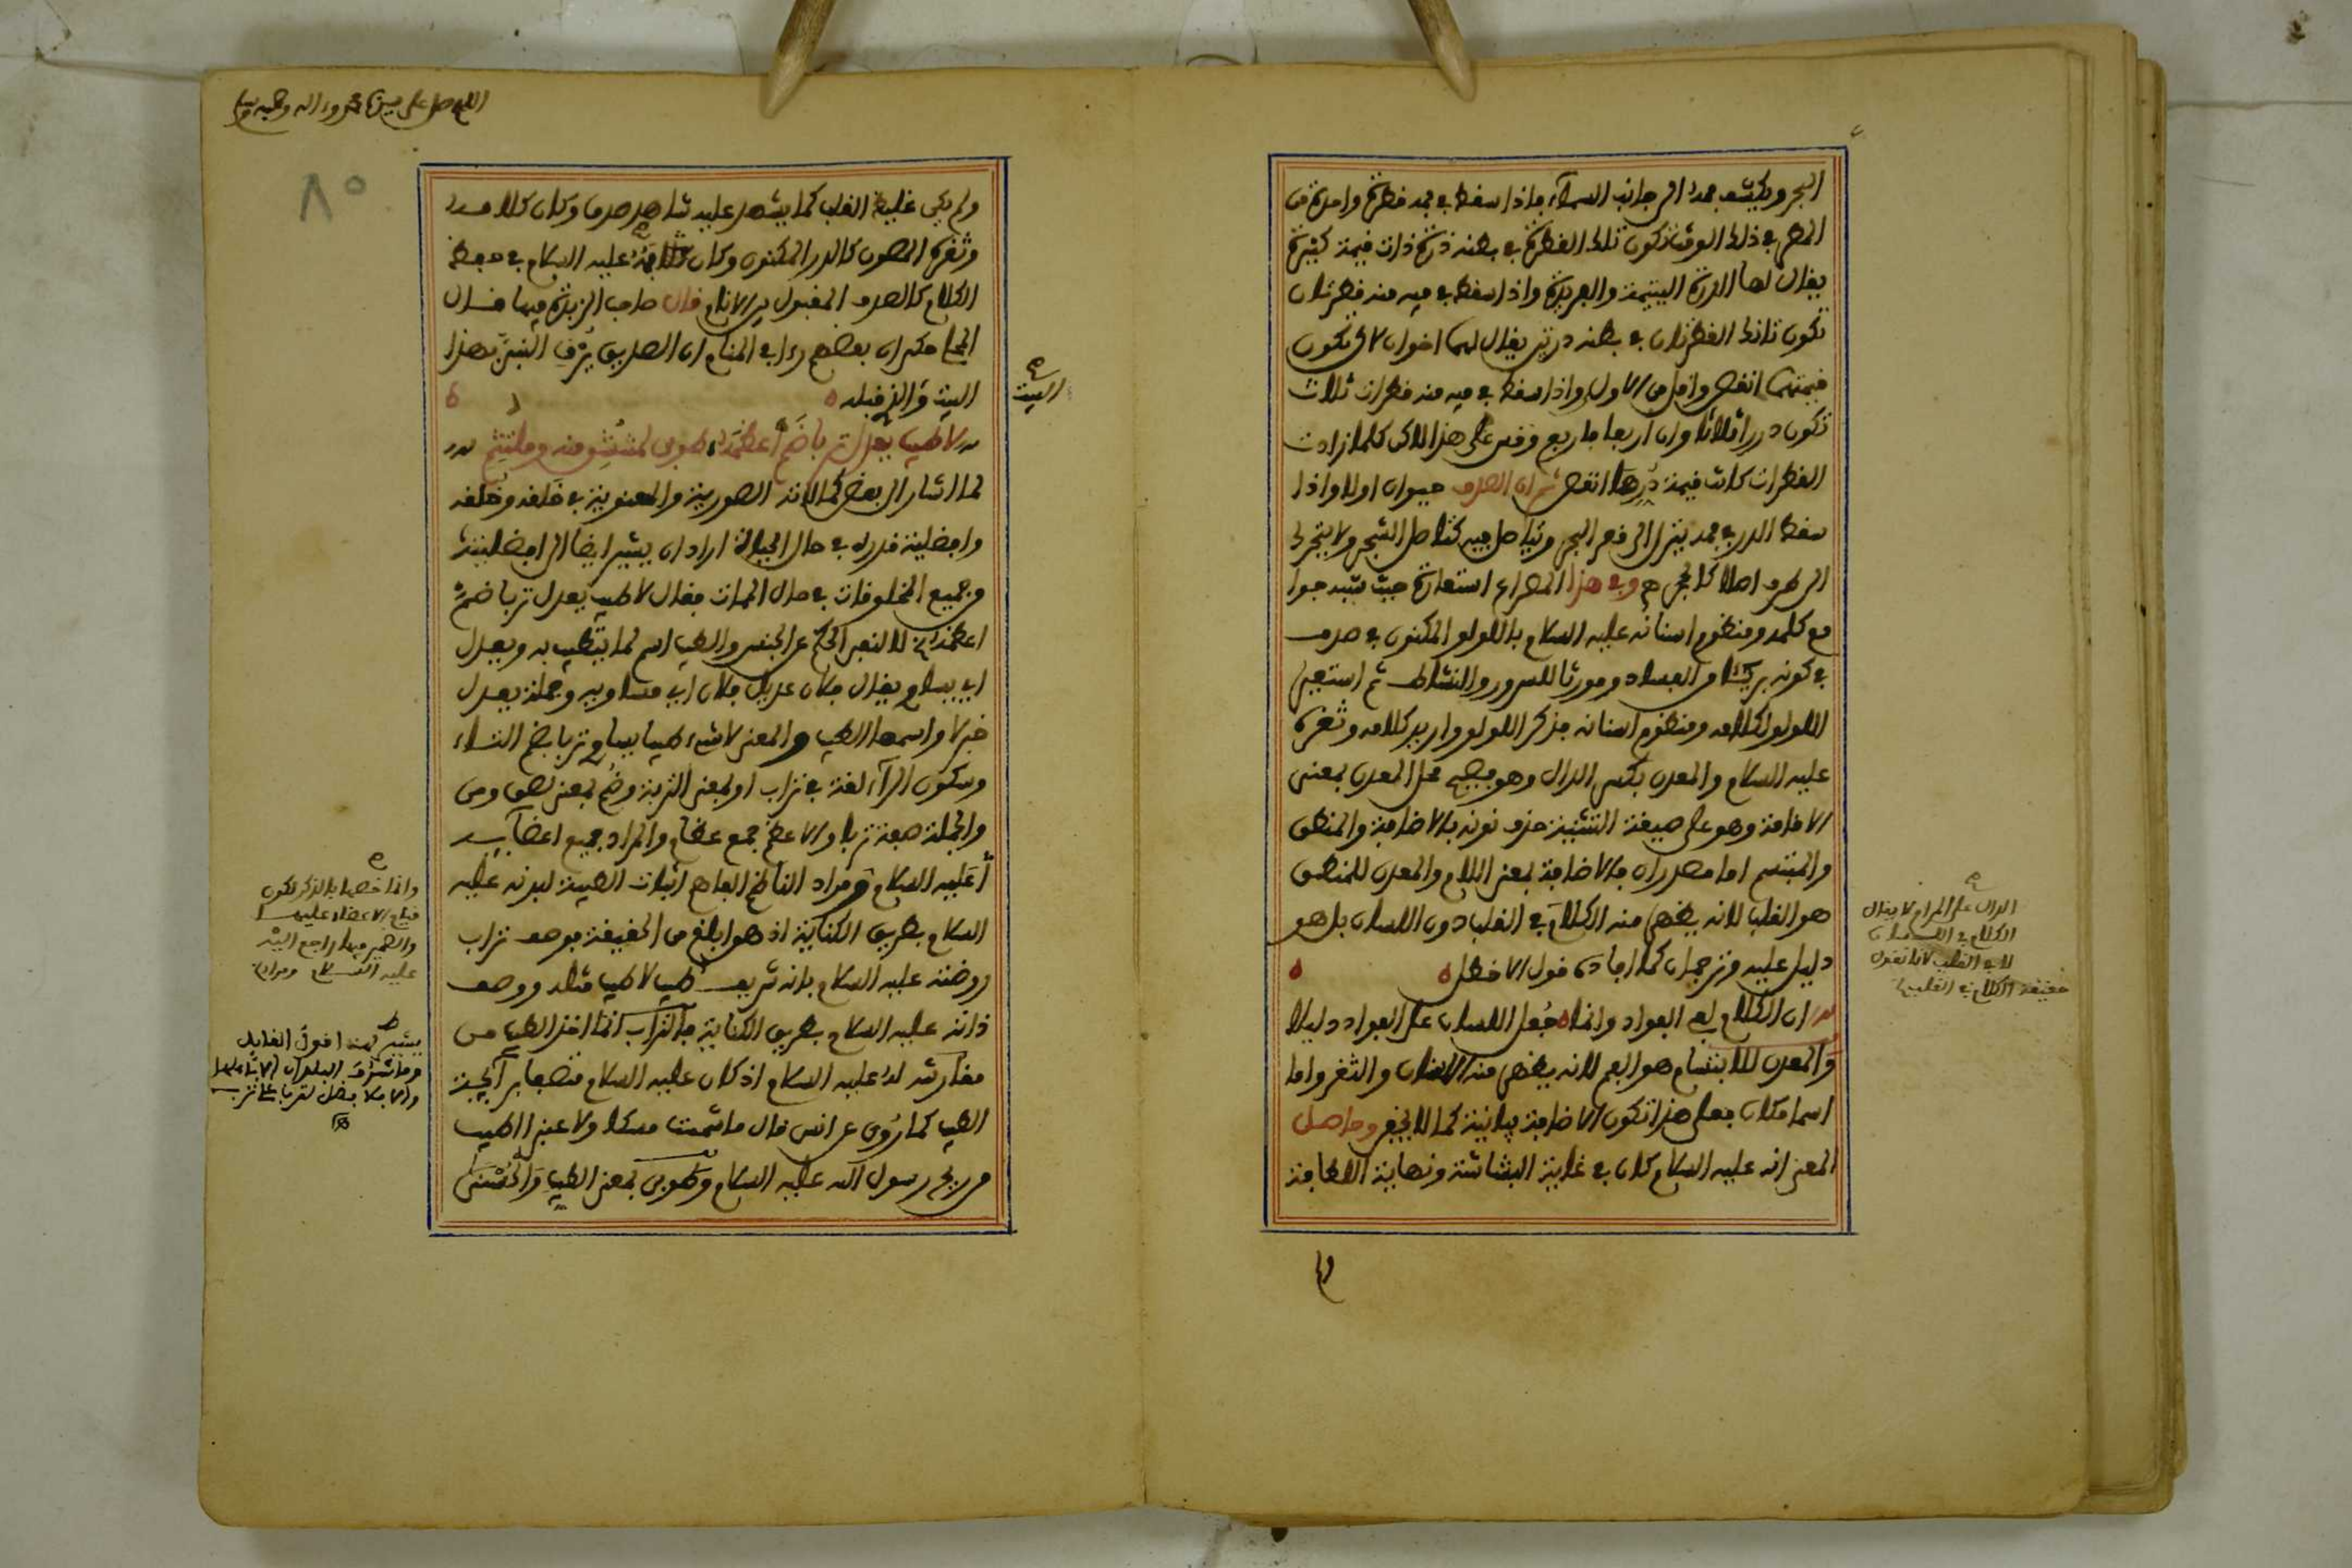 البحر ويكشف فمه الى جانب السماء فاذا سقط في فمه قطرة واحدة من
المطر في ذلك الوقت تكون تلك القطرة في بطنه درة ذات قيمة كثيرة
يقال لها الدرة اليتيمة والفريدة واذا سقط في فيه منه قطرتان
تكون تانك القطرتان في بطنه درتين يقال لهما اخوان لاكن تكون
قيمتهما انقص واقل من الاول واذا سقط في فيه منه قطرات ثلاث
تكون دررا ثلاثا وان اربعا فاربع وقس على هذا لاكن كلما زادت
القطرات كانت قيمة درها انقص ثم ان الصدف حيوان اولا واذا
سقط الدر في فمه ينزل الى قعر البحر ويتاصل فيه كتاصل الشجر ولا يتحرك
الى طرف اصلا كالحجر وفي هذا المصراع استعارة حيث شبه جوا
مع كلمه ومنظوم اسنانه عليه السلام باللولو المكنون في صدف
في كونه بريئا من الفساد ومورثا للسرور والنشاط ثم استعير
اللولو لكلامه ومنظوم اسنانه فذكر اللولو واريد كلامه وثغره
عليه السلام والمعدن بكسر الدال وهو فصيح محل العدن بمعنى
الاقامة وهو على صيغة التثنية حذف نونه بالاضافة والمنطق
والمبتسم اما مصدران فالاضافة بمعنى اللام والمعدن للمنطق
هو القلب لانه يظهر منه الكلام في القلب دون اللسان بل هو
دليل عليه وترجمان كما افاده قول الاخطل
ان الكلام لفي الفواد وانما جعل اللسان على الفواد دليلا
والمعدن للابتسام هو الفم لانه يظهر منه الاسنان والثغر واما
اسما مكان فعلى هذا تكون الاضافة بيانية كما لا يخفى وحاصل
المعنى انه عليه السلام كان في غاية البشاشة ونهاية اللطافة
الدال على المرام لا يقال
الكلام في اللسان
لا في القلب لانا نقول
حقيقة الكلام في القلب
ولم
اللهم صل على سيدنا محمد وءاله وصحبه وسلم
٨٥
ولم يكن غليظ القلب كما يشهد عليه شاهد صدق وكان كلامه
وثغره المصون كالدر المكنون وكان عليه السلام في معظم
الكلام كالصدف المقبول بين الانام قال صاحب الزبدة فيما قال
المحلى حكى ان بعضهم رءا في المنام ان الصديق يرقي النبي بهذا
البيت والذي قبله
البيت
لا طيب يعدل تربا ضم أعظمه طوبى لمنتشق منه وملتثم
لما اشار الى بعض كمالاته الصورية والمعنوية في خلقه وخلقه
وافضلية قدره في حال الحياة اراد ان يشير ايضا الى افضليته
وجميع المخلوقات في حال الممات فقال لا طيب يعدل تربا ضم
اعظمه لا لنفي الحكم عن الجنس والطيب اسم لما يتطيب به ويعدل
اي يساوي يقال فلان عديل فلان اي مساويه وجملة يعدل
خبر لا واسمها الطيب والمعنى لا شيء طيبا يساوي تربا بضم التاء
وسكون الراء لغة في تراب او بمعنى التربة وضم بمعنى لصق ومس
والجملة صفة تربا والاعظم جمع عظام والمراد جميع اعضايه
عليه السلام ومراد الناظم الفاهم اثبات الطيب لبدنه عليه
السلام بطريق الكناية اذ هو ابلغ من الحقيقة فوصف تراب
روضته عليه السلام بانه شريف طيب لا طيب مثله ووصف
ذاته عليه السلام بطريق الكناية فالتراب انما اخذ الطيب من
مقارنته له عليه السلام اذ كان عليه السلام متصفا برائحة
الطيب كما روي عن انس قال ما شممت مسكا ولا عنبرا اطيب
من ريح رسول الله عليه السلام وطوبى بمعنى الطيب والحسنى
وانما خصها بالذكر لكون
قيام الاعضاء عليها
والضمير فيها راجع اليه
عليه السلام ومراده
يشير لهذا قول القايل